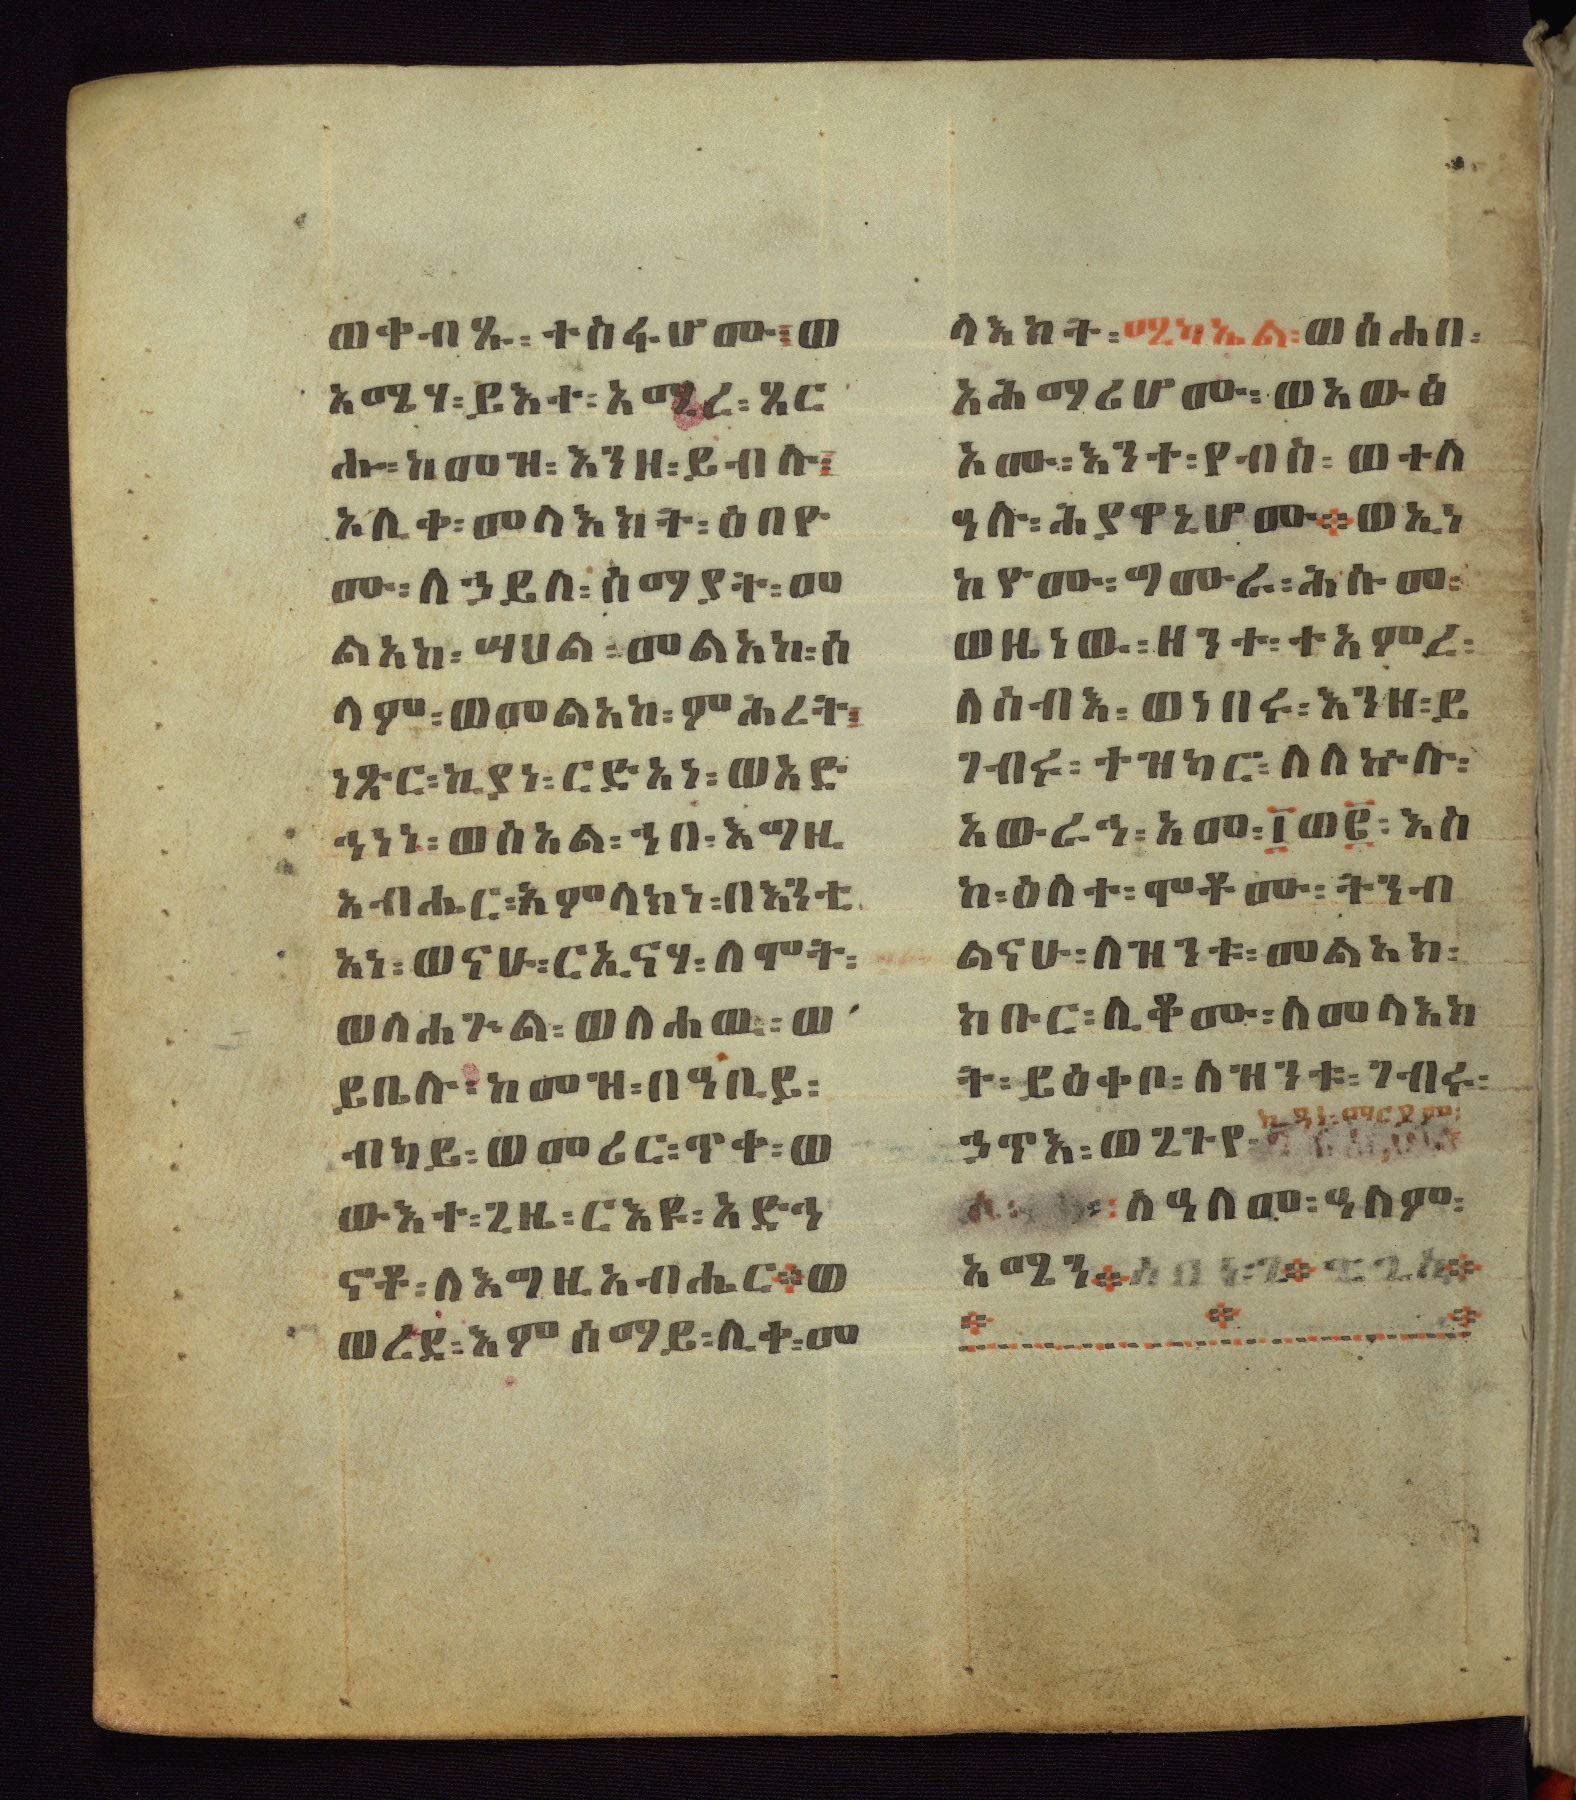 ወቀብጹ፡ ተስፋሆሙ፡ ወ
አሜሃ፡ ይእተ፡ አሚረ፡ ጸር
ሑ፡ ከመዝ፡ እንዘ፡ ይብሉ፡
ኦሊቀ፡ መላእክት፡ ዕበዮ
ሙ፡ ለኃይለ፡ ሰማያት፡ መ
ልአከ፡ ሣህል፡ መልአከ፡ ሰ
ላም፡ ወመልአከ፡ ምሕረት፡
ነጽር፡ ኪያነ፡ ርድአነ፡ ወአድ
ኅነነ፡ ወሰአል፡ ኀበ፡ እግዚ
አብሔር፡ አምላክነ፡ በእንቲ
አነ፡ ወናሁ፡ ርኢናሃ፡ ለሞት፡
ወለሐጕል፡ ወለሐዉ፡ ወ
ይቤሉ፡ ከመዝ፡ በዓቢይ፡
ብካይ፡ ወመሪር፡ ጥቀ፡ ወ
ውእተ፡ ጊዜ፡ ርእዩ፡ አድኅ
ኖቶ፡ ለእግዚአብሔር። ወ
ወረደ፡ እምሰማይ፡ ሊቀ፡ መ
ላእክት፡ ሚካኤል፡ ወሰሐበ፡
አሕማሪሆሙ፡ ወአውፅ
አሙ፡ እንተ፡ የብስ፡ ወተለ
ዓሉ፡ ሕያዋኒሆሙ። ወኢነ
ከዮሙ፡ ግሙራ፡ ሕሱመ፡
ወዜነው፡ ዘንተ፡ ተአምረ፡
ለሰብእ፡ ወነበሩ፡ እንዘ፡ ይ
ገብሩ፡ ተዝካር፡ ለለኵሉ፡
አውራኅ፡ አመ፡ ፲ወ፪፡ እስ
ከ፡ ዕለተ፡ ሞቶሙ፡ ትንብ
ልናሁ፡ ለዝንቱ፡ መልአክ፡
ክቡር፡ ሊቆሙ፡ ለመላእክ
ት፡ ይዕቀቦ፡ ለዝንቱ፡ ገብሩ፡
ኃጥእ፡ ወጊጉየ፡
ለዓለመ፡ ዓለም፡
አሜን።